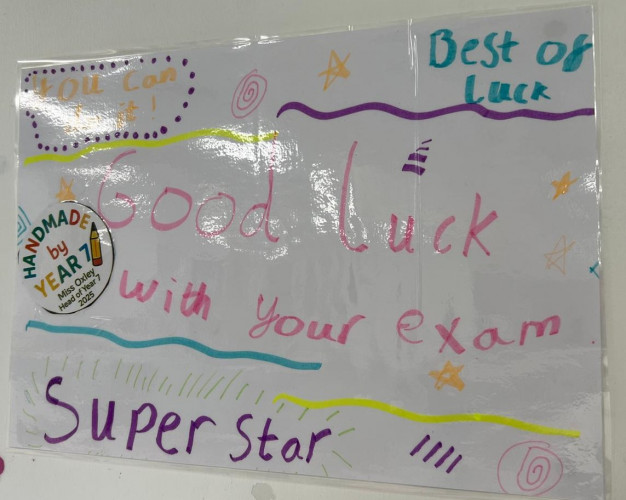 You can
do it!
Best of
Luck
Good Luck
with your exam
HANDMADE
by
YEAR 7
Miss Oxley
Head of Year 7
2025
Super Star